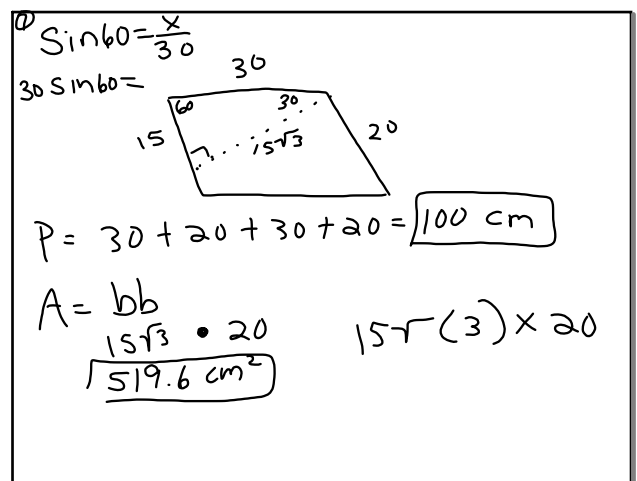 ① Sin60=x/30
30 sin60=
30
60 30
15 15√3 20
P= 30+20+30+20= 100 cm
A= bb
15√3 • 20 15√(3)×20
519.6 cm²